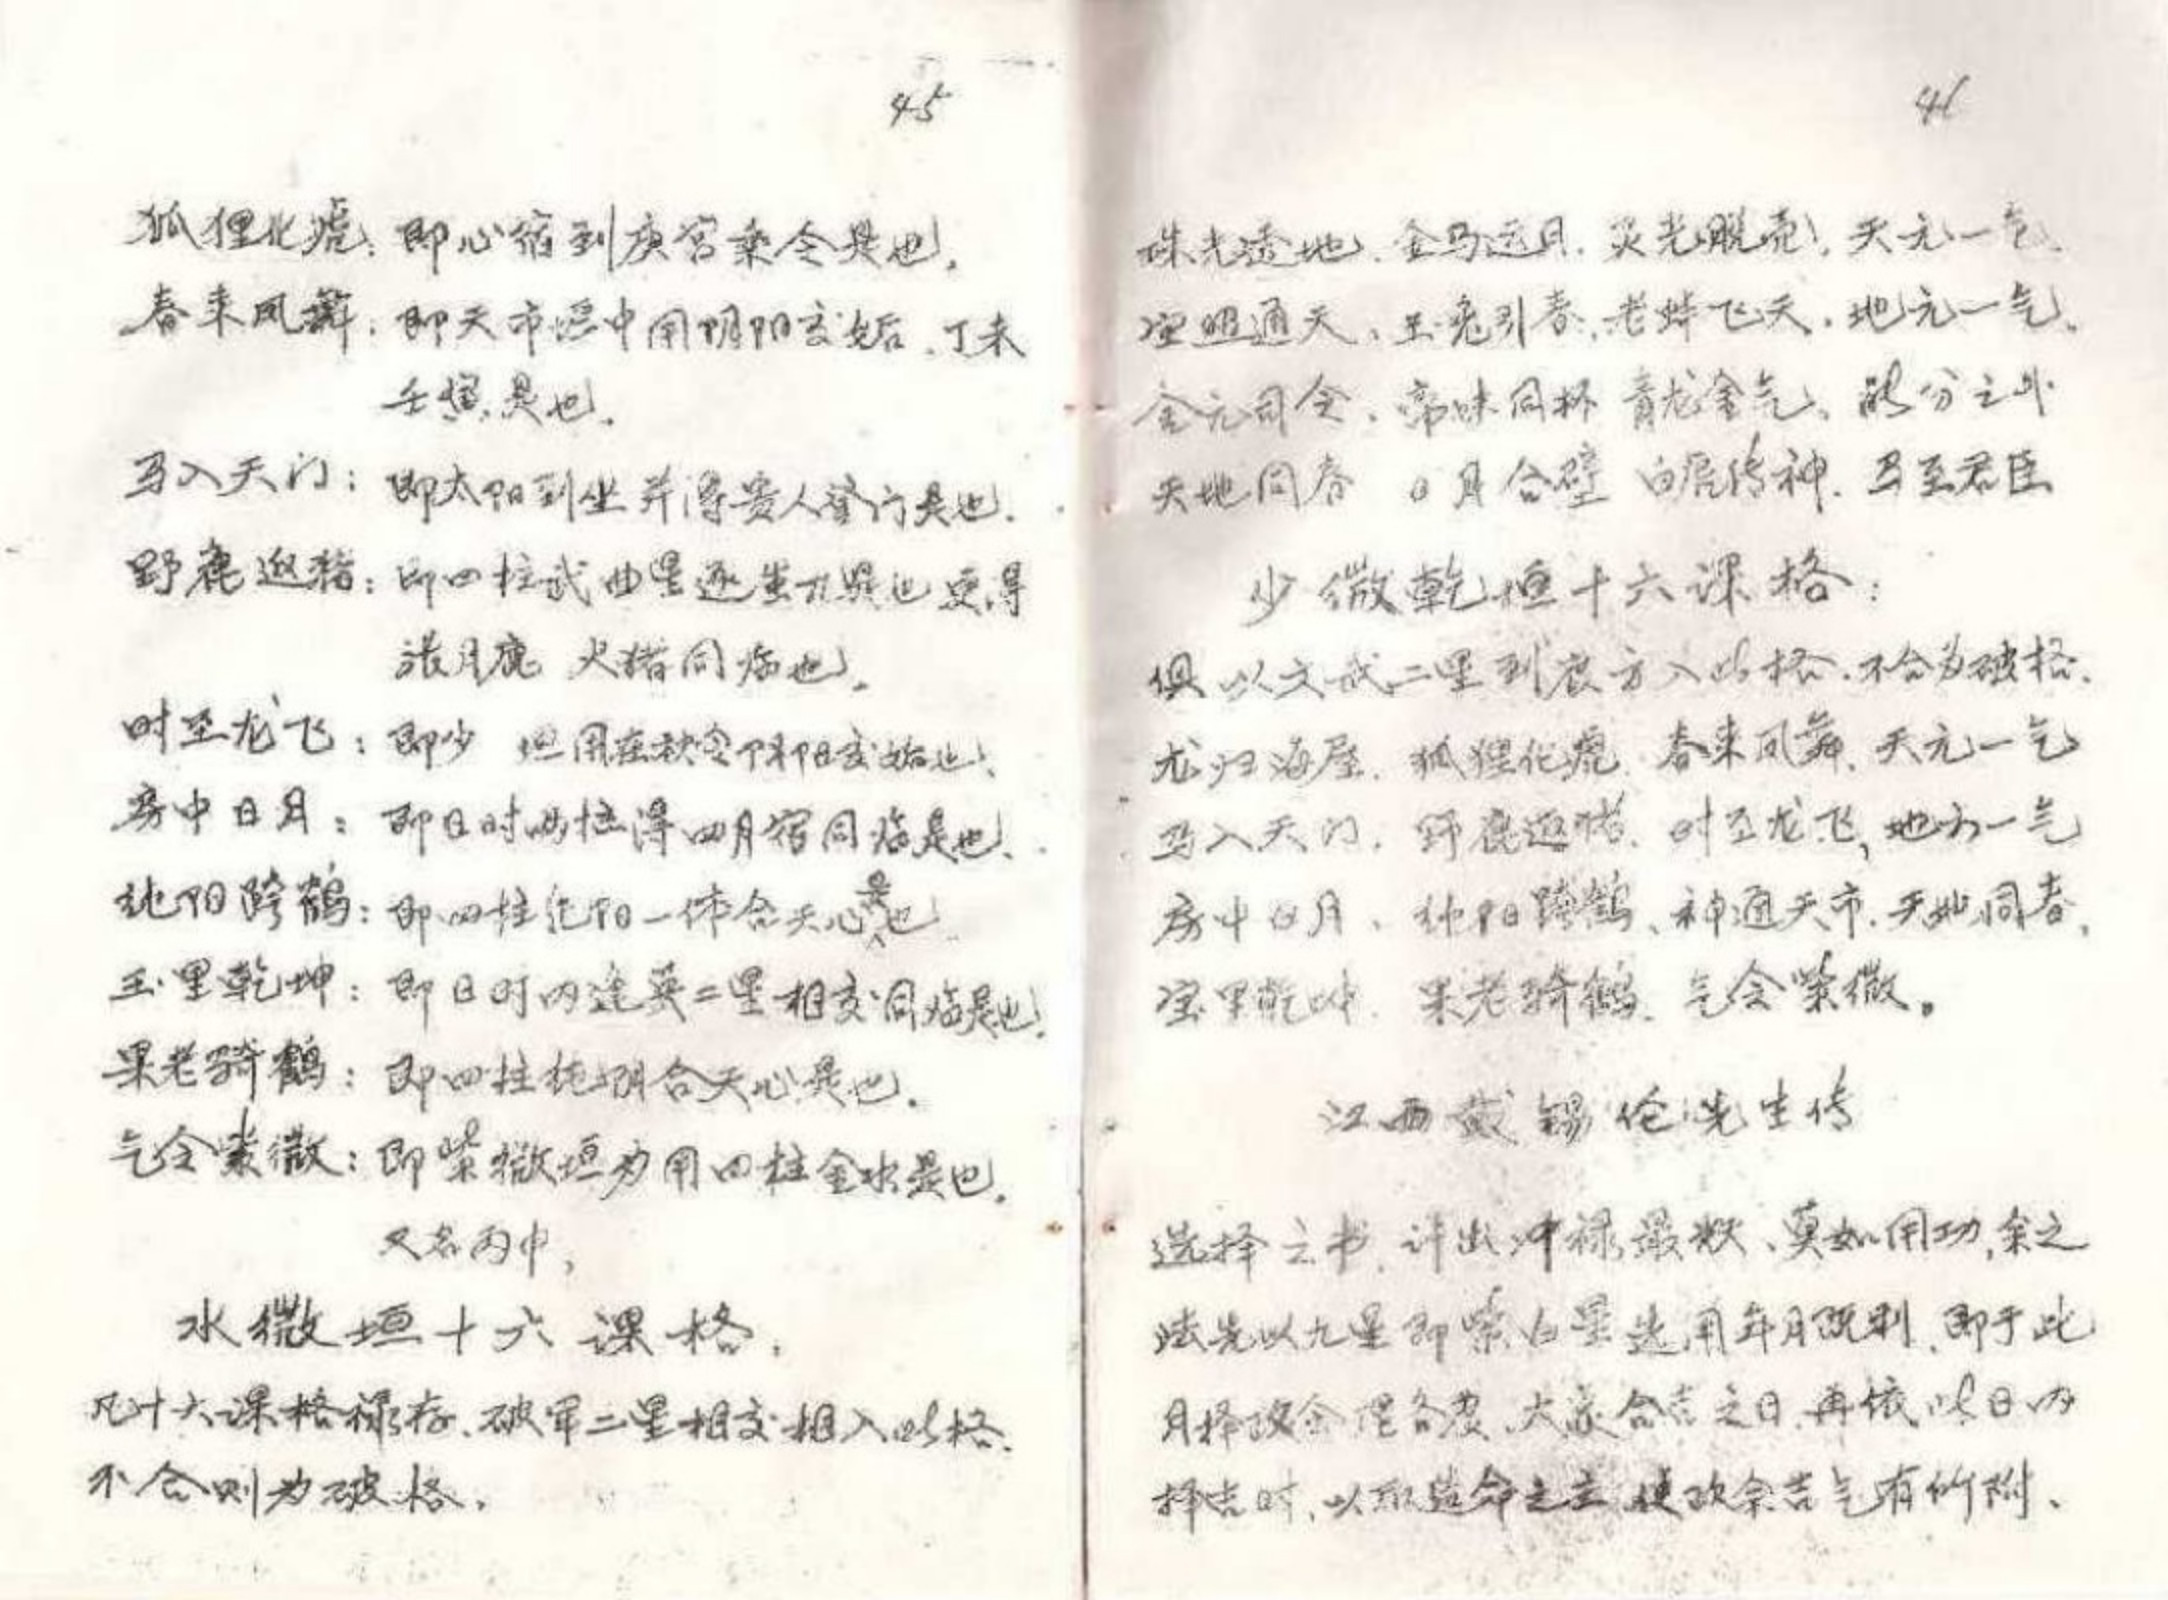 45
狐狸化虎：即心宿到庚宫乘令是也。
春来凤舞：即天市垣中用阴阳交始后，丁未
壬寅是也。
马入天门：即太阳到坐并得贵人登门是也。
野鹿逐猪：即四柱武曲星逐 是也更得
张月鹿 火猪同临也。
时至龙飞：即少 垣用在秋令 阳交始也、
房中日月：即日时两柱得四月宿同临是也、
纯阳跨鹤：即四柱纯阳一体合天心是也
玉里乾坤：即日时内逢 二星相交同临是也。
果老骑鹤：即四柱纯阴合天心是也。
气令紫微：即紫微垣为用四柱金水是也。
又名两中，
水微垣十六课格。
凡十六课格禄存、破军二星相交相入此格、
不合则为破格。
46
珠光透地、金马运月、灵光脱壳、天元一气、
宝盟通天、玉兔引春、老蚌飞天、地元一气、
金元司令、 同杯 青龙金气、 分之
天地同春 日月合璧 白虎传神、马至君臣
少微乾垣十六课格：
俱以文武二星到 方入此格、不合为破格、
龙归海屋、狐狸化虎、春来凤舞、天元一气
马入天门、野鹿逐猪、时至龙飞，地 一气
房中日月、纯阳跨鹤、神通天市、天地同春、
宝里乾坤、果老骑鹤、气会紫微。
江西戴锡伦先生传
选择之书、 出 禄最 、莫如用功，余之
法先以九星即紫白星选用年月既利、即于此
月择 合吉之日、再依此日内
择吉时、以取造命之主 使 余吉气有所附、